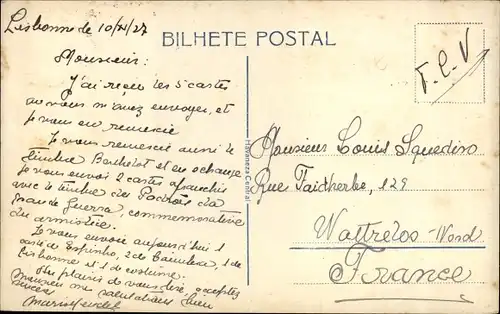 Lisbonne le 10/XI/27
BILHETE POSTAL
Monsieur:
J'ai reçu les 5 cartes
que vous m'avez envoyer, et
je vous en remercie
Je vous remercie aussi le
timbre Berthelot et en échange
Je vous envoi 2 cartes afranchis
avec le timbre du Padrois da
Grande Guerra, commemorative
du armistice.
Je vous envoie aujourd'hui 1
carte de Espinho, 2 de Coimbra, 1 de
Lisbonne et 1 de costume.
plaisir de vous lire, acceptez
Monsieur me salutations bien
T.C.V
Havaneza Central
Monsieur Louis Squedin
Rue Faidherbe, 129
Wattrelos-Nord
France